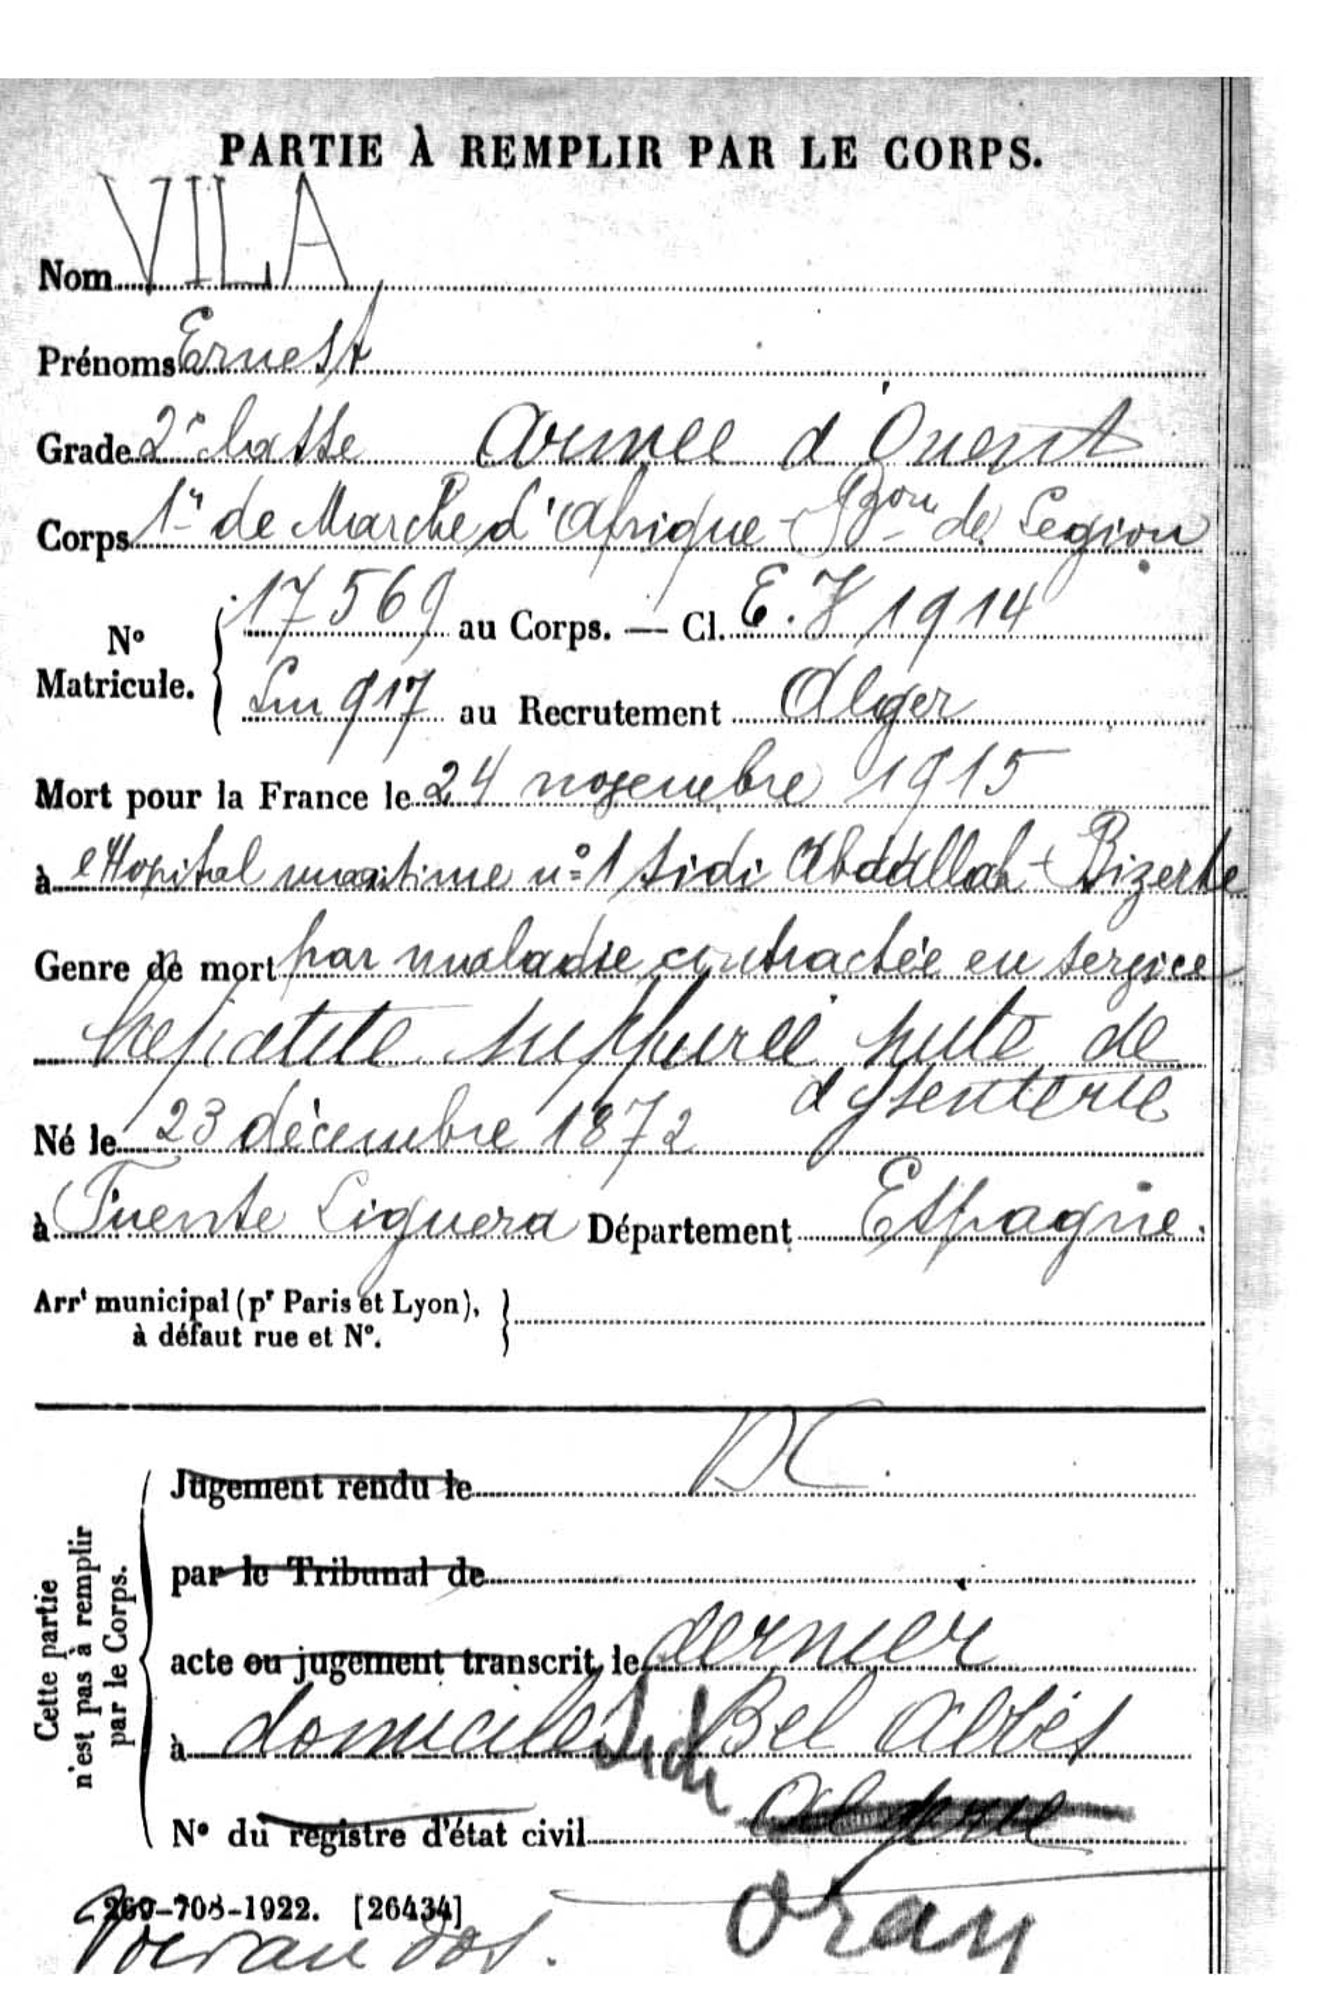 PARTIE À REMPLIR PAR LE CORPS.
Nom VILA
Prénoms Ernest
Grade 2e classe Armée d'Orient
Corps 1er de Marche d'Afrique - Bon de Légion
N° Matricule. 17569 au Corps. — Cl. E.V 1914
917 au Recrutement Alger
Mort pour la France le 24 novembre 1915
à l'Hopital maritime n° 1 Sidi Abdallah - Bizerte
Genre de mort par maladie contractée en service
hépatite suppurée suite de
dysenterie
Né le 23 décembre 1872
à Fuente Liguera Département Espagne.
Arrt municipal (pr Paris et Lyon),
à défaut rue et N°.
DC
Cette partie
n'est pas à remplir
par le Corps.
Jugement rendu le
par le Tribunal de
acte ou jugement transcrit le dernier
à domicile Sidi Bel Abbès
Algérie
N° du registre d'état civil
Oran
269-708-1922. [26434]
Voir au dos.